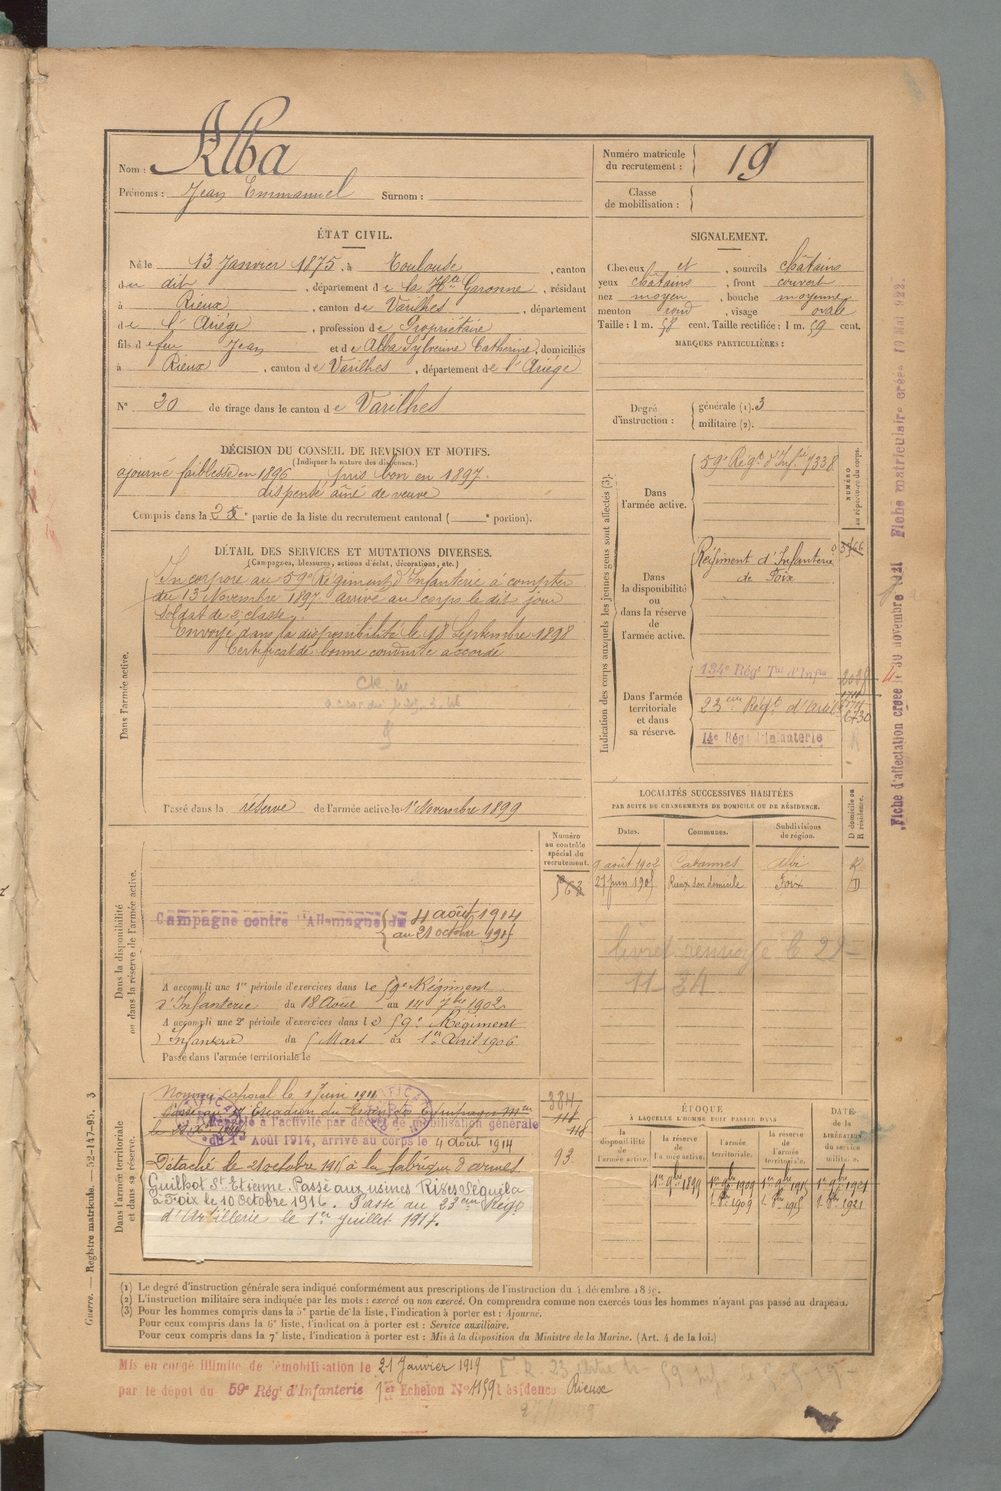 Nom : Alba
Prénoms : Jean Emmanuel Surnom :
Numéro matricule du recrutement : 19
Classe de mobilisation :
ÉTAT CIVIL.
Né le 13 Janvier 1875, à Toulouse, canton
du dit, département de la Hte Garonne, résidant
à Rieux, canton de Varilhes, département
de l'Ariège, profession de Propriétaire
fils de feu Jean et de Alba Sylverine Catherine, domiciliés
à Rieux, canton de Varilhes, département de l'Ariège
N° 20 de tirage dans le canton de Varilhes
SIGNALEMENT.
Cheveux et, sourcils châtains
yeux châtains, front couvert
nez moyen, bouche moyenne
menton rond, visage ovale
Taille : 1 m. 58 cent. Taille rectifiée : 1 m. 59 cent.
MARQUES PARTICULIÈRES :
Degré d'instruction : générale (1). 3
militaire (2).
DÉCISION DU CONSEIL DE REVISION ET MOTIFS.
(Indiquer la nature des dispenses.)
ajourné faiblesse en 1896 pris bon en 1897.
dispensé aîné de veuve
Compris dans la 2e partie de la liste du recrutement cantonal ( e portion).
DÉTAIL DES SERVICES ET MUTATIONS DIVERSES.
(Campagnes, blessures, actions d'éclat, décorations, etc.)
Dans l'armée active.
Incorporé au 59e Régiment d'Infanterie à compter
du 13 Novembre 1897 arrivé au corps le dit jour
soldat de 2e classe.
Envoyé dans la disponibilité le 18 Septembre 1898
Certificat de bonne conduite accordé
Passé dans la réserve de l'armée active le 1er Novembre 1899
Indication des corps auxquels les jeunes gens sont affectés (3).
Dans l'armée active.
59e Régt d'Infie 7338
NUMÉRO au répertoire du corps.
Dans la disponibilité ou dans la réserve de l'armée active.
Régiment d'Infanterie
de Foix
Dans l'armée territoriale et dans sa réserve.
134e Régt Tal d'Infie
23eme Régt d'Artil
6730
14e Régt d'Infanterie
LOCALITÉS SUCCESSIVES HABITÉES
PAR SUITE DE CHANGEMENTS DE DOMICILE OU DE RÉSIDENCE.
Dates. Communes. Subdivisions de région. D domicile ou R résidence.
août 1902 Cabannes Albi R
27 juin 1905 Rieux son domicile Foix D
livret renvoyé le 22-
11-34
Dans la disponibilité ou dans la réserve de l'armée active.
Numéro au contrôle spécial du recrutement.
562
Campagne contre l'Allemagne du 4 août 1914
au 21 octobre 1915
A accompli une 1re période d'exercices dans le 59e Régiment
d'Infanterie du 18 Août au 14 7bre 1902
A accompli une 2e période d'exercices dans le 59e Régiment
d'Infanterie du 5 Mars au 1er Avril 1906
Passé dans l'armée territoriale le
Dans l'armée territoriale et dans sa réserve.
Nommé Caporal le 1 Juin 1911 384
Rappelé à l'activité par décret de mobilisation générale
du 1er Août 1914, arrivé au corps le 4 août 1914
Détaché le 21 octobre 1915 à la fabrique d'armes 93
Guilhot St Etienne. Passé aux usines
à Foix le 10 Octobre 1916. Passé au 23eme Régt
d'Artillerie le 1er Juillet 1917.
ÉPOQUE
À LAQUELLE L'HOMME DOIT PASSER DANS
la disponibilité de l'armée active. la réserve de l'armée active. l'armée territoriale. la réserve de l'armée territoriale.
DATE de la LIBÉRATION du service militaire.
1er 9bre 1899 1er 9bre 1909 1er 9bre 1915 1er 9bre 1921
1909 1915 1921
(1) Le degré d'instruction générale sera indiqué conformément aux prescriptions de l'instruction du 4 décembre 1889.
(2) L'instruction militaire sera indiquée par les mots : exercé ou non exercé. On comprendra comme non exercés tous les hommes n'ayant pas passé au drapeau.
(3) Pour les hommes compris dans la 5e partie de la liste, l'indication à porter est : Ajourné.
Pour ceux compris dans la 6e liste, l'indication à porter est : Service auxiliaire.
Pour ceux compris dans la 7e liste, l'indication à porter est : Mis à la disposition du Ministre de la Marine. (Art. 4 de la loi.)
Mis en congé illimité de démobilisation le 21 Janvier 1919
par le dépôt du 59e Régt d'Infanterie 1er Echelon N° 4159 Résidence Rieux
Guerre. — Registre matricule. — 52-147-95. 3
Fiche d'affectation créée le 30 novembre 1921 Fiche matriculaire créée 19 Mai 922.